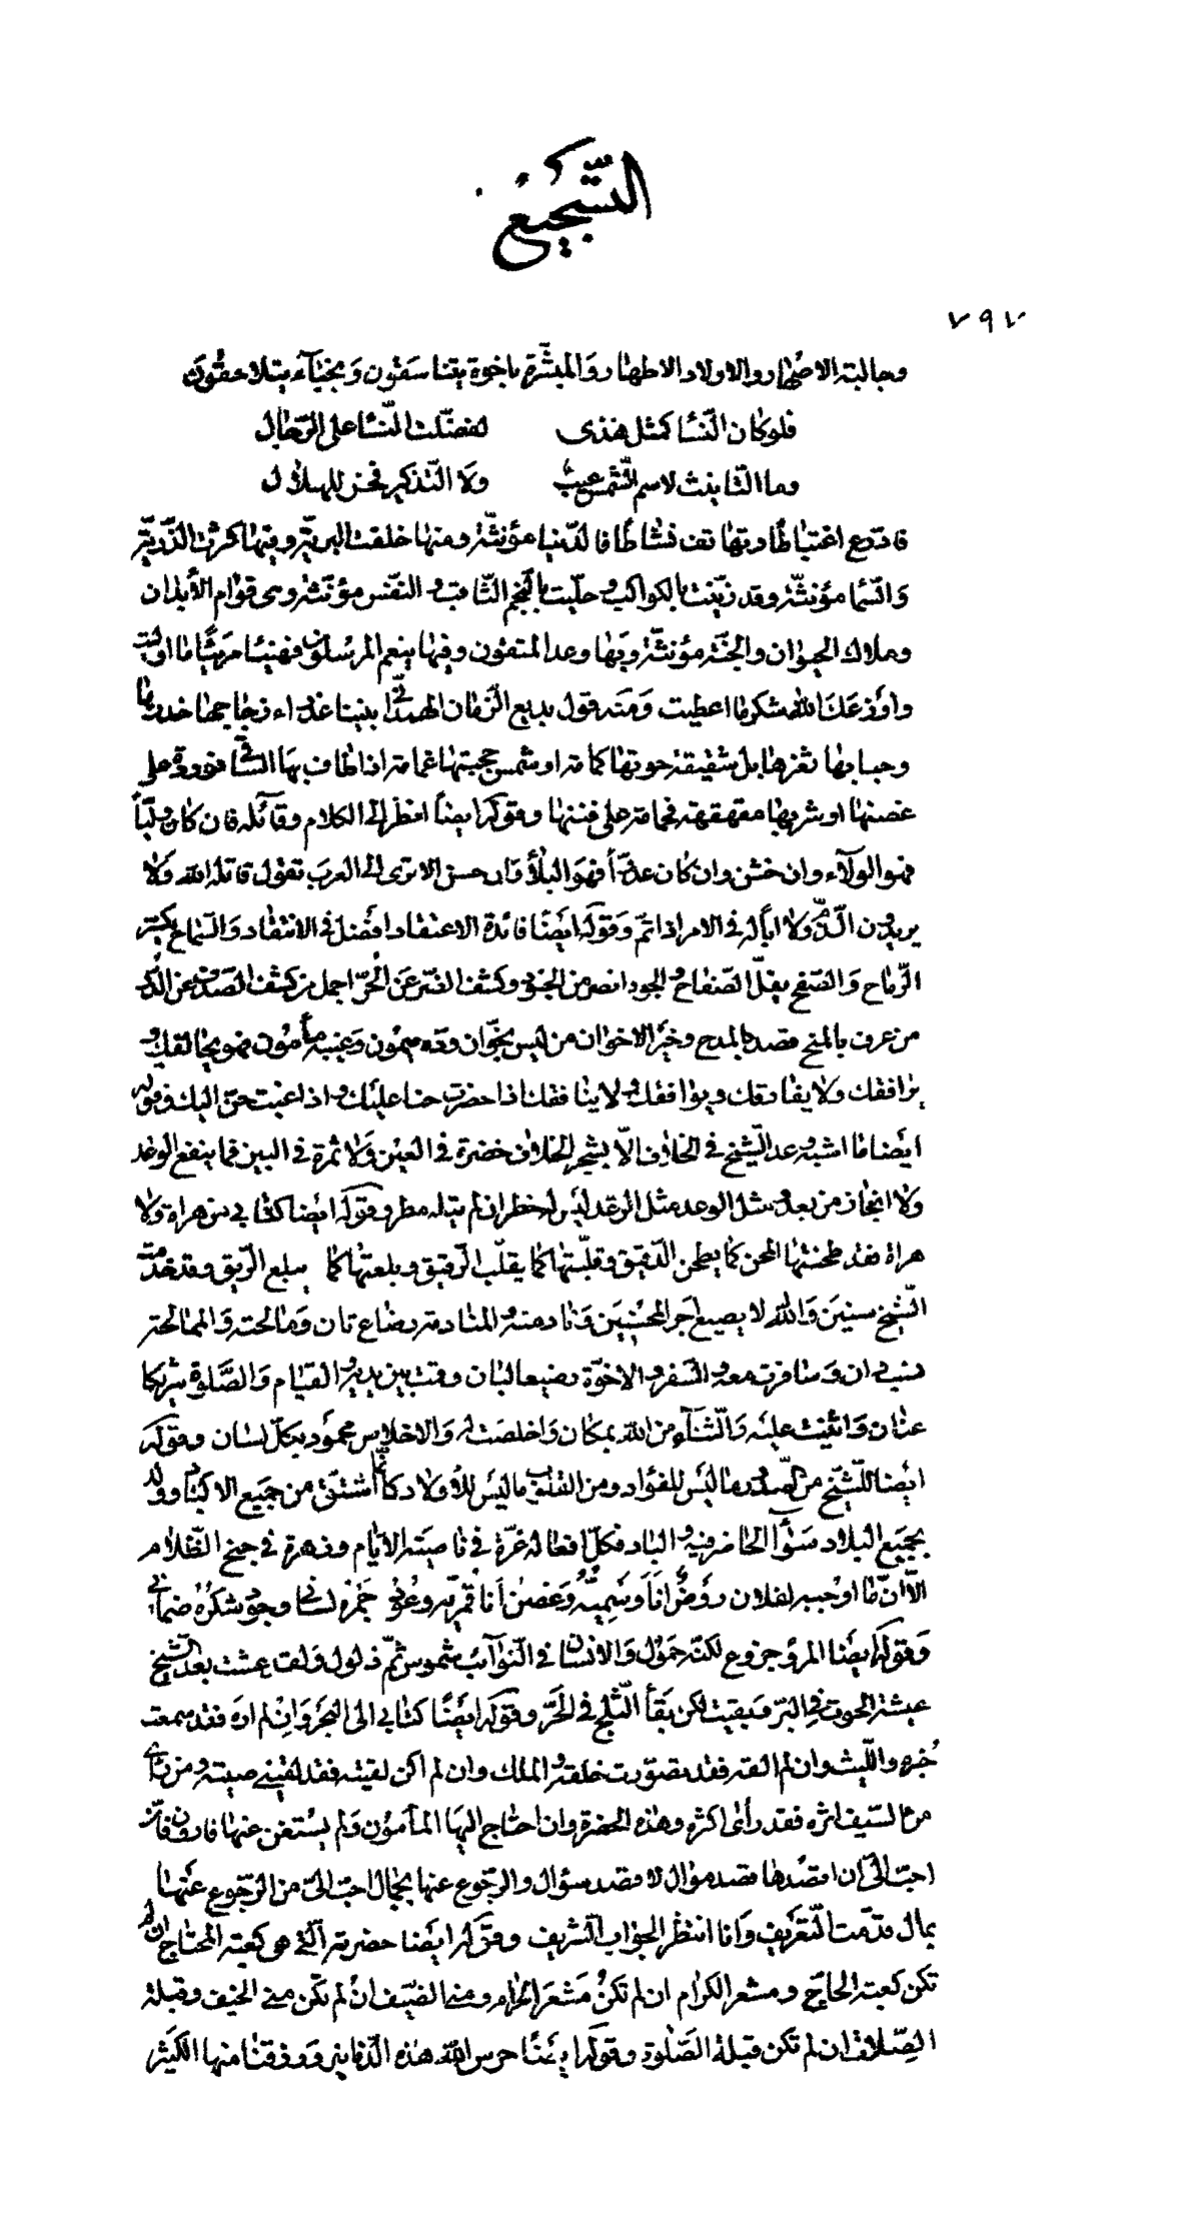 التسجيع
٧٩٧
وجالبة الاصهار والاولاد الاطهار والمبشرة باخوة يتناسقون ونجباء يتلاحقون
فلو كان النسا كمثل هذى لفضلت النسا على الرجال
وما التانيث لاسم الشمس عيب ولا التذكير فخر للهلال
فادرع اغتباطا وتهانف نشاطا فالدنيا مؤنثة ومنها خلقت البرية وفيها كثرت الذرية
والسما مؤنثة وقد زينت بالكواكب وحليت بالنجم الثاقب والنفس مؤنثة وهى قوام الأبدان
وملاك الحيوان والجنة مؤنثة وبها وعد المتقون وفيها ينعم المرسلون فهنيئا مريئا ما اوليت
واوزعك الله شكر ما اعطيت ومنه قول بديع الزمان الهمدانى بنينا عذراء زجاجها خدرها
وحبابها ثغرها بل شقيقة حوتها كمامة او شمس حجبتها غمامة اذا طاف بها الساقى فوردة على
غصنها او شربها مقهقهة فحمامة على فننها وقوله ايضا انظر الى الكلام وقائله فان كان وليا
فهو الولاء وان خشن وان كان عدوا فهو البلاء وان حسن الا ترى الى العرب تقول قاتله الله ولا
يريدون الذم ولا اباله فى الامر اذا تم وقوله ايضا فائدة الاعتقاد افضل فى الانتقاد والسماح يكسر
الرماح والصفح يفل الصفاح والجود انصر من الجنود وكشف الضر عن الحر اجمل من كشف الصدف عن الدر
من عرف بالمنح قصد بالمدح وخير الاخوان من ليس بخوان وده ميمون وغيبه مأمون فهو يحالفك و
يرافقك ولا يفارقك ويوافقك ولا ينافقك اذا حضرت حنا عليك واذا غبت حن اليك وقوله
ايضا ما اشبه وعد الشيخ فى الخلاف الا بشجر الخلاف خضرة فى العين ولا ثمرة فى البين فما ينفع الوعد
ولا انجاز من بعده مثل الوعد مثل الرعد ليس له خطر ان لم يتله مطر وقوله ايضا كتابى من هراة ولا
هراة فقد طحنتها المحن كما يطحن الدقيق وقلبتها كما يقلب الرقيق وبلعتها كما يبلع الريق وقد خدمت
الشيخ سنين والله لا يضيع اجر المحسنين ونادمته والمنادمة رضاع ثان ومالحته والممالحة
نسب دان وسافرت معه والسفر والاخوة رضيعا لبان وقمت بين يديه والقيام والصلوة شريكا
عنان واثنيت عليه والثناء من الله بمكان واخلصت له والاخلاص محمود بكل لسان وقوله
ايضا للشيخ من الصدور ما ليس للفؤاد ومن القلوب ما ليس للأولاد كانما اشتق من جميع الاكباد وولد
بجميع البلاد سواء الحاضر فيه والباد فكل افعاله غرة فى ناصية الايام وزهرة فى جنح الظلام
الا ان ما اوجبه لفلان روض انا وسميه وغصن انا قمريه وعود جمره لسانى وجود شكره ضمانى
وقوله ايضا المرؤ جزوع لكنه حمول والانسان فى النوائب شموس ثم ذلول ولقد عشت بعد الشيخ
عيشة الحوت فى البر وبقيت لكن بقأ الثلج فى الحر وقوله ايضا كتابى الى البحر وان لم اره فقد سمعت
خبره والليث وان لم القه فقد تصورت خلقه والملك وان لم اكن لقيته فقد لقينى صيته ومن راى
من السيف اثره فقد رأى اكثره وهذه الحضرة وان احتاج اليها المأمون ولم يستغن عنها قارون فان
احب الى ان اقصدها قصد موال لا قصد سؤال والرجوع عنها بجمال احب الى من الرجوع عنها
بمال قدمت التعريف وانا انتظر الجواب الشريف وقوله ايضا حضرته التى هى كعبة المحتاج ان لم
تكن كعبة الحاج ومشعر الكرام ان لم تكن مشعر الحرام ومنى الضيف ان لم تكن منى الخيف وقبلة
الصلات ان لم تكن قبلة الصلوة وقوله ايضا حرس الله هذه الدفاين ورزقنا منها الكثير